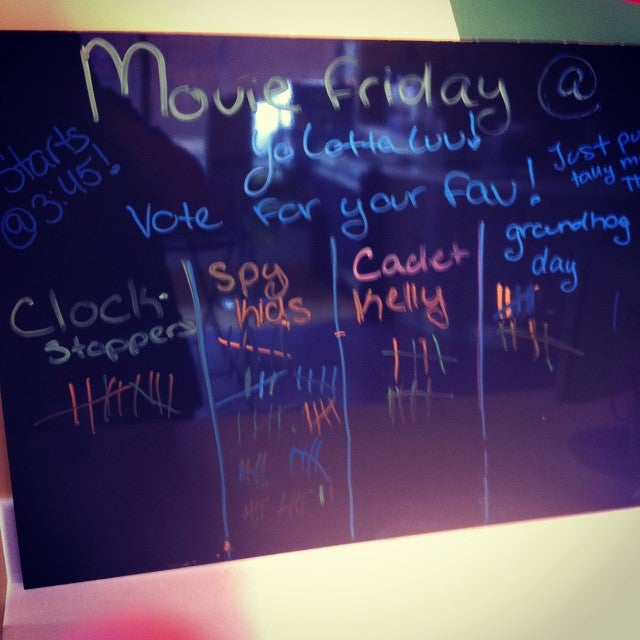 Movie Friday @
Yo Lotta Luv!
Starts
@ 3:45!
Just pu
tally m
Vote for your Fav!
Clock
stoppers
Spy
Kids
Cadet
Kelly
groundhog
day